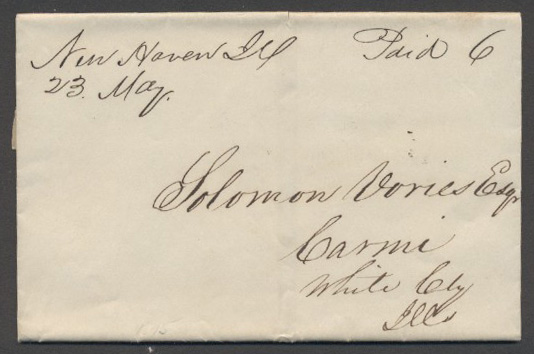 New Haven Ill
Paid 6
23. May.
Solomon Vories Esqr
Carmi
White Cty
Ills